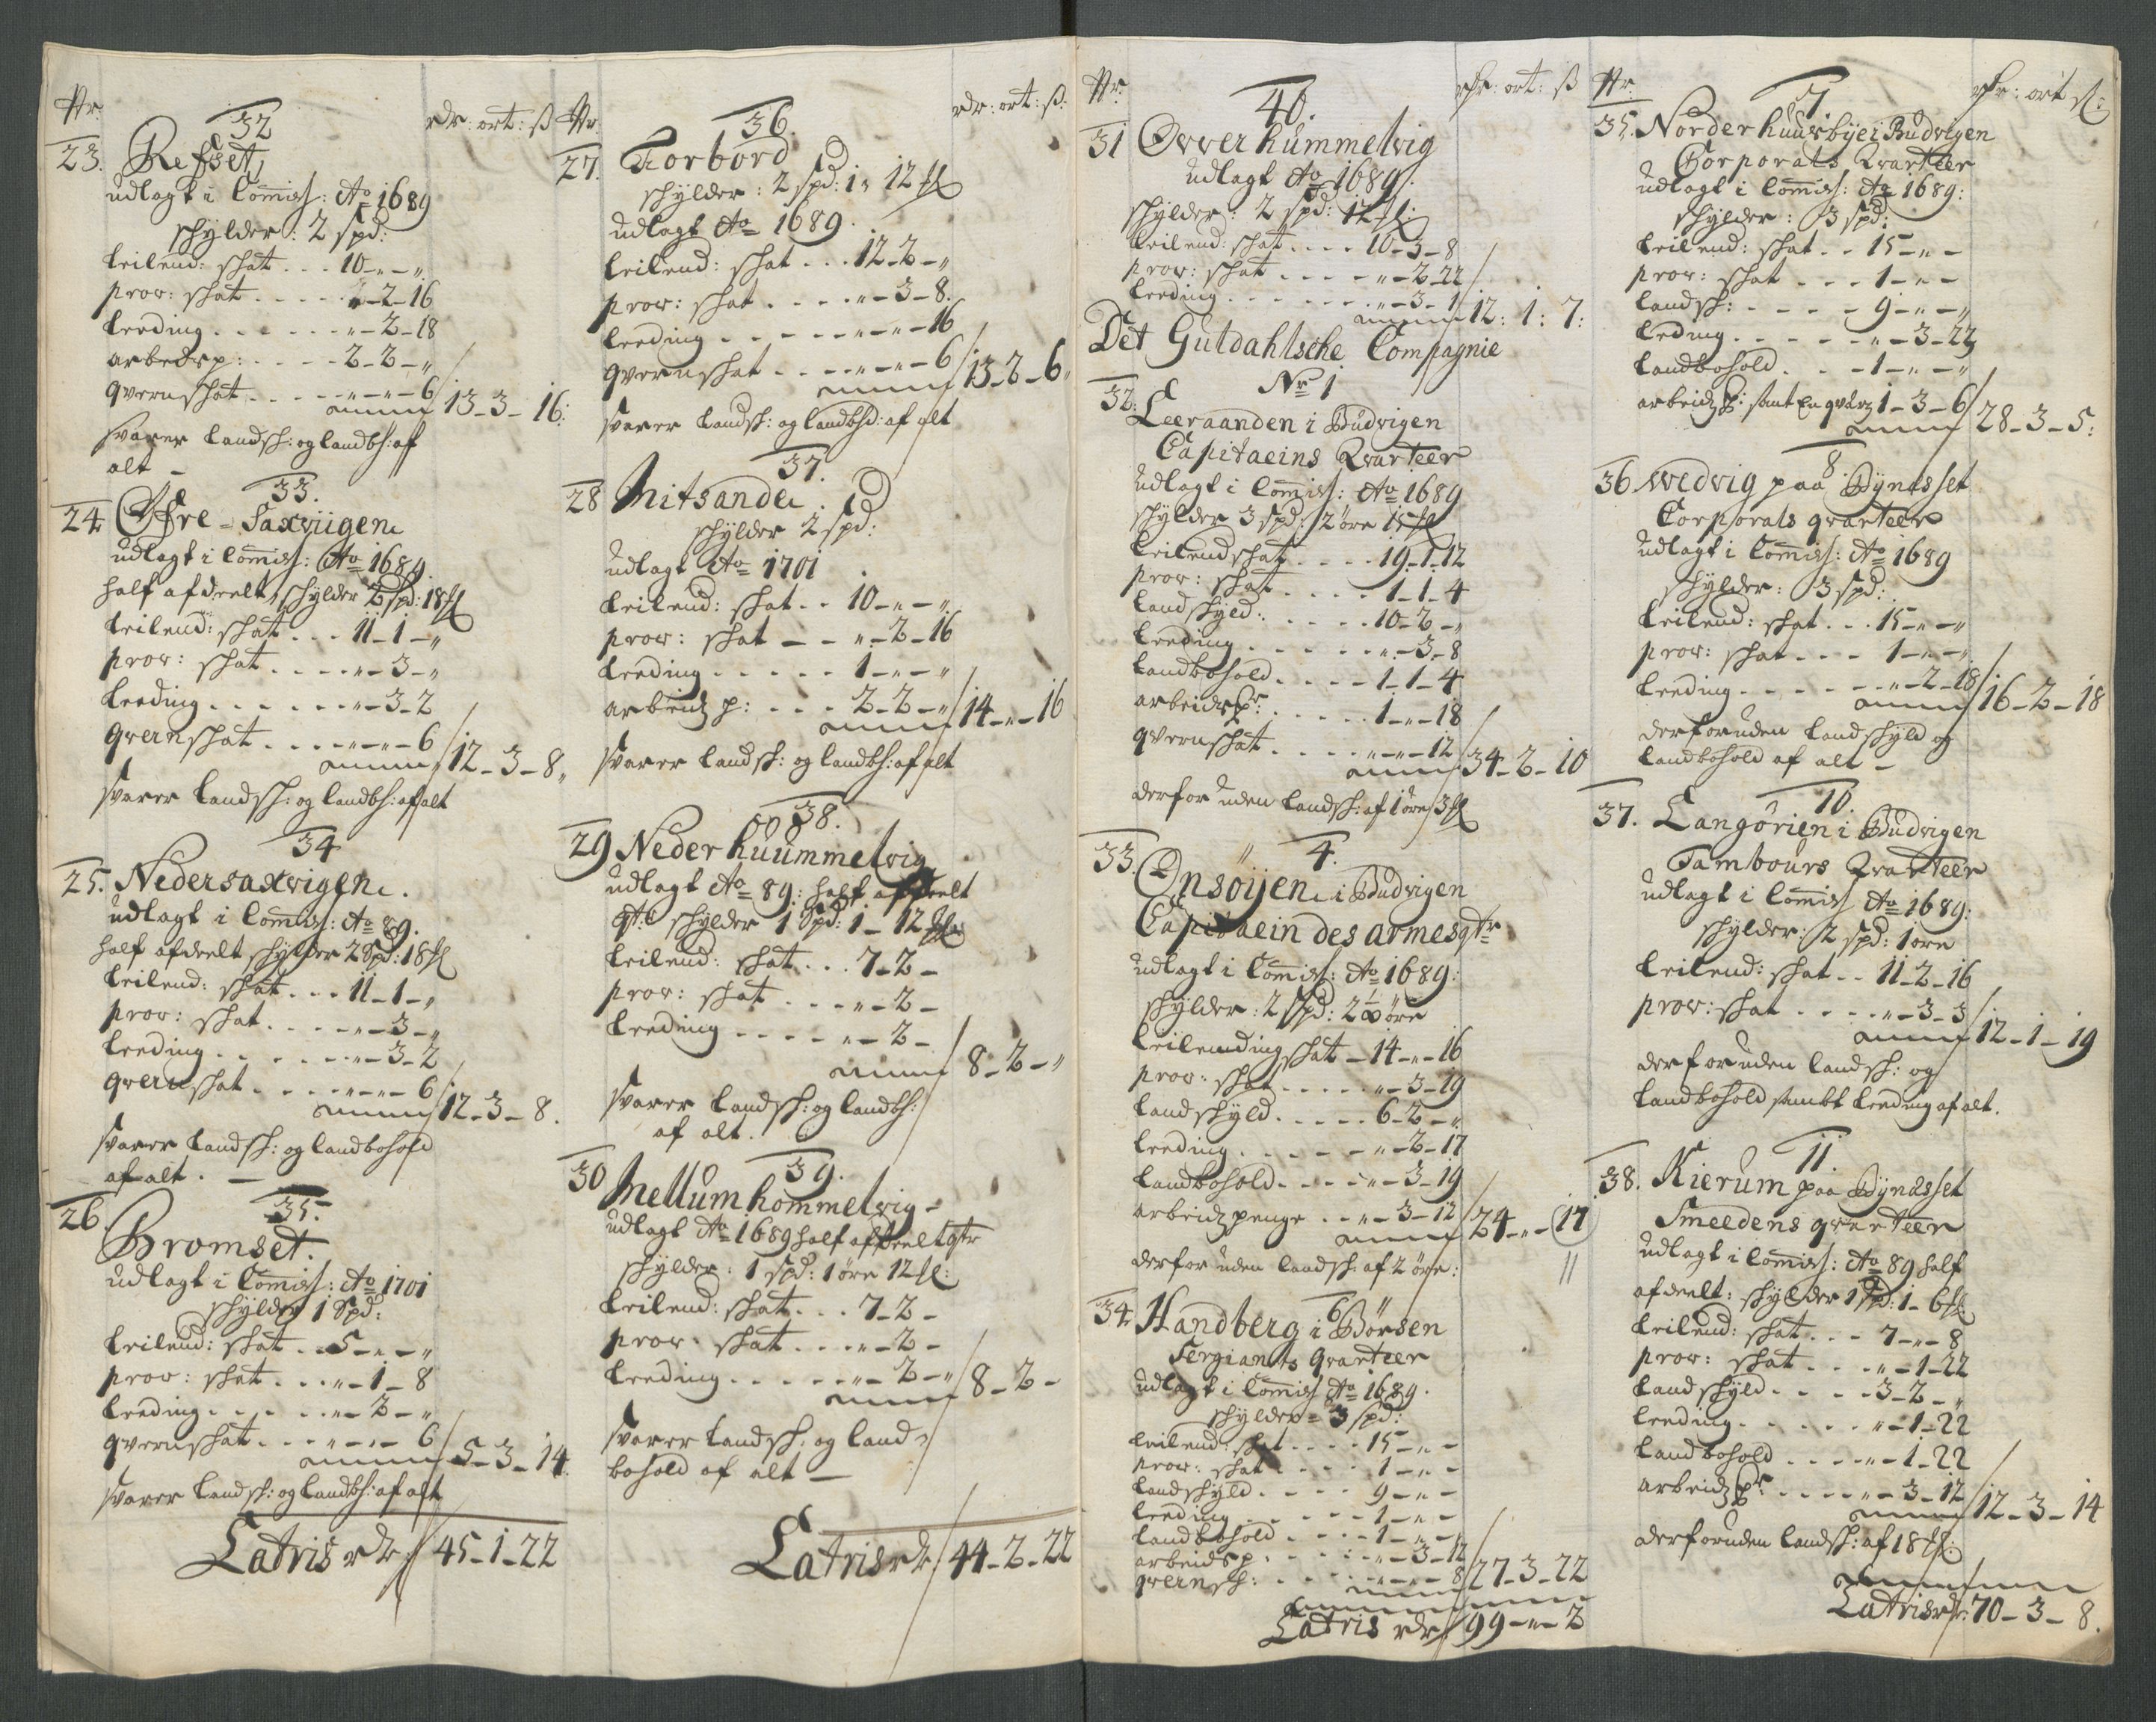 Nr. rdr: ort: ß
32
23. Refset,
udlagt i Comiss: Ao 1689
schylder: 2 spd:
Leilend: schat . . . 10 – „ – „
prow: schat . . . . . „ – 2 – 16
Leeding . . . . . . „ – 2 – 18
arbedsp: . . . . 2 – 2 – „
qvernschat . . . . . „ – „ – 6 / 13 – 3 – 16:
svarer Landsch: og Landbh: af
alt –
33.
24. Øfre = Saxviigen
udlagt i Comiss: Ao 1689.
half afdeelt, schylder 2 spd: 18 
Leilend: schat . . . 11 – 1 – „
prow: schat . . . . . „ – 3 – „
Leeding . . . . . . . „ – 3 – 2
qvernschat . . . . „ – „ – 6 / 12 – 3 – 8 „
svarer Landsch: og Landbh: af alt
34
25. Nedersaxvigen.
udlagt i Comiss: Ao 89.
half afdeelt schylder 2 Spd: 18 
Leilend: schat . . . 11 – 1 – „
prow: schat . . . . . „ – 3 – „
Leeding . . . . . . . „ – 3 – 2
qvernschat . . . . . „ – „ – 6 / 12 – 3 – 8.
svarer Landsch: og Landbohold
af alt. –
35.
26. Bromset.
udlagt i Comiss: Ao 1701
schylder 1 Spd:
Leilend: schat . . 5 – „ – „
prow: schat . . . „ – 1 – 8
Leeding . . . . . „ – 2 – „
qvernschat . . . „ – „ – 6 / 5 – 3 – 14.
svarer Landsch: og Landbh: af alt
Latris rdr / 45 – 1 – 22
Nr. rdr: ort: ß:
36.
27. Torbord
schylder: 2 spd: 1 „ 12 
udlagt Ao 1689.
Leilend: schat . . . 12 – 2 – „
prow: schat . . . . „ – 3 – 8.
Leeding . . . . . „ – „ – 16
qvernschat . . . . . „ – „ – 6 / 13 – 2 – 6 „
svarer Landsch: og Landbhd: af alt
37.
28 Mitsande.
schylder 2 spd:
udlagt Ao 1701
Leilend: schat . . 10 – „ – „
prow: schat – – „ – 2 – 16
Leeding . . . . . 1 – „ – „
arbeidz p: . . . 2 – 2 – „ / 14 – „ – 16
svarer Landsch: og Landbh: af alt
38.
29 Neder huummelvig
udlagt Ao 89: half afdeelt
qt: schylder 1 Spd: 1 – 12 
Leilend: schat . . . 7 – 2 –
prow: schat . . . „ – 2 –
Leeding . . . . „ – 2 –
8 – 2 – „
svarer Landsch: og Landbh:
af alt.
39.
30 Mellum hommelvig –
udlagt Ao 1689 half afdeelt qtr
schylder: 1 spd: 1 öre 12 
Leilend: schat . . . 7 – 2 –
prow: schat . . . „ – 2 –
Leeding . . . . . „ – 2 – „ / 8 – 2 –
svarer Landsch: og Land=
bohold af alt –
Latris rdr / 44 – 2 – 22
Nr. rdr: ort: ß
40.
31 Owerhummelvig
udlagt Ao 1689.
schylder: 2 spd: 12 
Leilend: schat . . . . 10 – 3 – 8
prow: schat . . . . . „ – 2 – 22
Leeding . . . . . . . „ – 3 – 1 / 12: 1: 7:
Det Guldahlsche Compagnie
Nr 1
32. Leeraanden i Budvigen
Capitaeins Qvarteer
udlagt i Comiss: Ao 1689
schylder 3 spd: 2 öre 15 
Leilendschat . . . . 19 – 1 – 12
prow: schat . . . . 1 – 1 – 4
Landschyld: . . . . . 10 – 2 – „
Leeding . . . . . . „ – 3 – 8
Landbohold . . . . 1 – 1 – 4
arbeidspr: . . . . . 1 – „ – 18
qvernschat . . . . . „ – „ – 12 / 34 – 2 – 10
derfor uden Landsch: af 1 öre 3 
4.
33. Onsöijen i Budvigen
Capitaein des armes qtr
udlagt i Comiss: Ao 1689:
schylder: 2 spd: 2 1/8 öre
Leilendingschat – 14 – „ – 16
prow: schat . . . . . „ – 3 – 19
Landschyld . . . . . 6 – 2 – „
Leeding . . . . . . „ – 2 – 17
Landbohold . . . . . „ – 3 – 19
arbeidzpenge . . „ – 3 – 12 / 24 – „ – 17
derfor uden Landsch: af 2 öre:
6
34. Handberg i Börsen
Sergiants Qvarteer
udlagt i Comiss Ao 1689.
schylder = 3 spd:
Leilend: schat . . . . 15 – „ –
prow: schat . . . . 1 – „ –
Landschyld . . . . 9 – „ –
Leeding . . . . . . 1 – „ –
Landbohold . . . . 1 – „ –
arbeidsp: . . . . . „ – 3 – 12
qvernsch: . . . . . „ – „ – 8 / 27 – 3 – 22
Latris rdr / 99 – „ – 2
Nr. rdr: ort ß:
7.
35. Norderhuusbye i Budvigen
Corporals Qvarteer
udlagt i Comiss: Ao 1689:
schylder: 3 spd:
Leilend: schat . . 15 – „ –
prow: schat . . . 1 – „ –
Landsch: . . . . 9 – „ – „
Leding . . . . . . „ – 3 – 23
Landbohold . . . 1 – „ – „
arbeidz p: samt En qværn 1 – 3 – 6 / 28 – 3 – 5:
8.
36 Wedvig paa Bynesset
Corporals qvarteer
udlagt i Comiss: Ao 1689
schylder: 3 spd:
Leilend: schat . . . 15 – „ – „
prow: schat . . . 1 – „ – „
Leeding . . . . . . „ – 2 – 18 / 16 – 2 – 18
derforuden Landschyld og
Landbohold af alt –
10.
37. Langörien i Budvigen
Tambours Qvarteer
udlagt i Comiss Ao 1689:
schylder: 2 spd: 1 öre
Leilend: schat . . 11 – 2 – 16
prow: schat . . . . . „ – 3 – 3 / 12 – 1 – 19
derforuden Landsch: og
Landbohold sambt Leeding af alt.
11.
38. Kierum paa Bynesset
Smeedens qvarteer
udlagt i Comiss: Ao 89 half
afdeelt: schylder 1 spd: 1 – 6 
Leilend: schat . . . 7 – „ – 8
prow: schat . . . . „ – 1 – 22
Landschyld . . . . 3 – 2 – „
Leeding . . . . . . „ – 1 – 22
Landbohold . . . . „ – 1 – 22
arbeidz pr: . . . . . „ – 3 – 12 / 12 – 3 – 14
derforuden Landsch: af 18 
Latris rdr: 70 – 3 – 8.